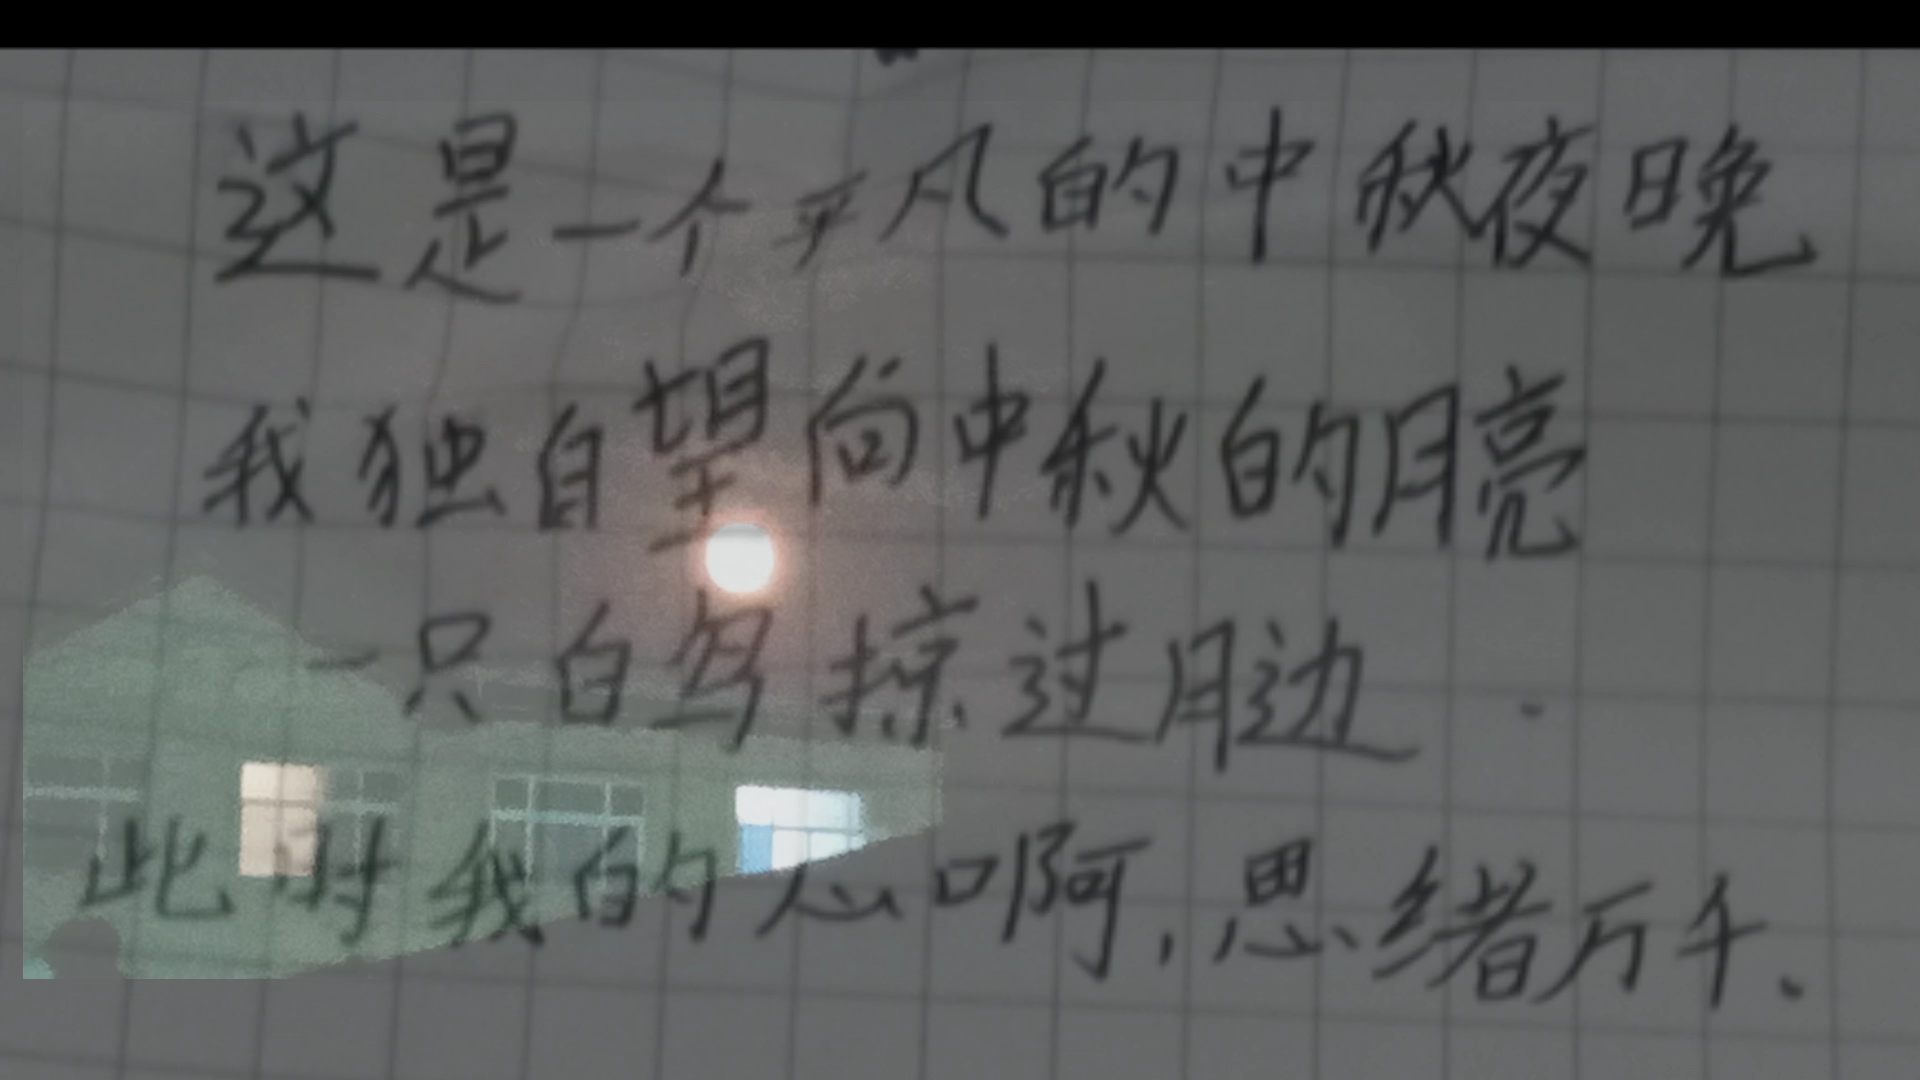 这是一个平凡的中秋夜晚
我独自望向中秋的月亮
一只白鸟掠过月边
此时我的心啊,思绪万千.